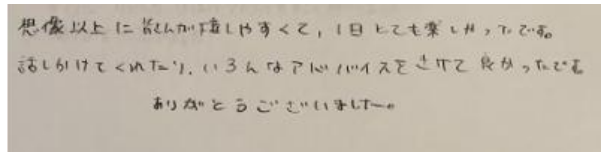 想像以上に皆んが接しやすくて、1日とても楽しかったです。
話しかけてくれたり、いろんなアドバイスをきけて良かったです
ありがとうございました。